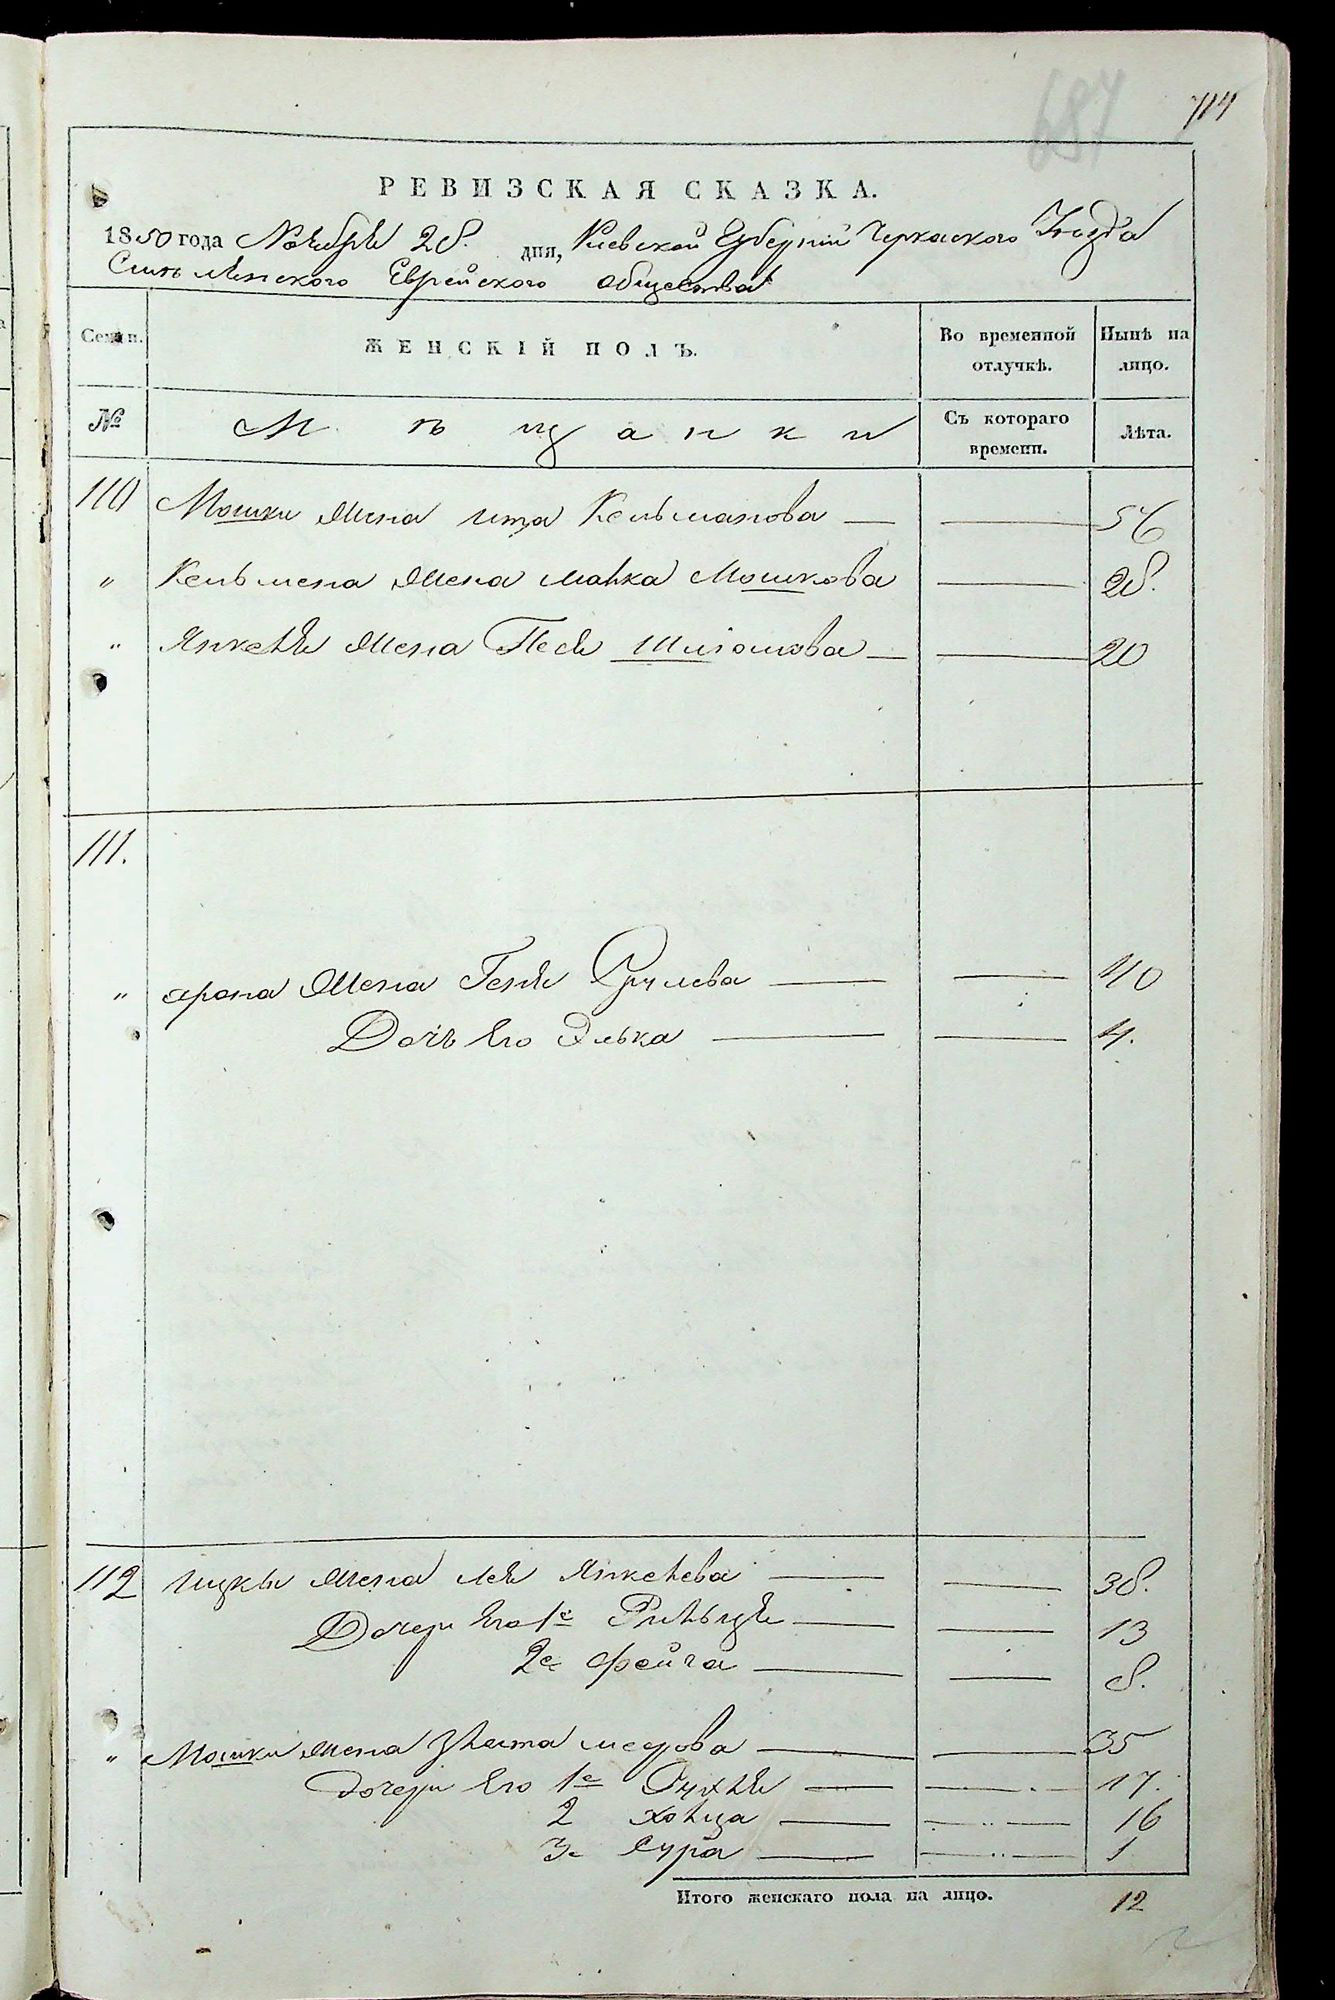 714
687
РЕВИЗСКАЯ СКАЗКА.
1850 года Ноября 28. дня, Киевской Губернии Черкаского Уезда
Смилянского Еврейского общества
Семьи.
ЖЕНСКІЙ ПОЛЪ.
Во временной отлучкѣ.
Нынѣ на лицо.
№
Мѣщанки
Съ котораго времени.
Лѣта.
110 Мошки жена Ита Кельманова — — 56
" Кельмена жена Манка Мошкова — 28.
" Янкеля жена Песя Шліомова — — 20
111.
" Арона жена Геня Срулева — — 40
Дочь Его Элька — — 4.
112 Ицки жена Лея Янкелева — — 38.
Дочери Его 1е Ривъця — — 13
2е Фейга — — 8.
" Мошки жена Злата — — 35
дочери Его 1е Рухля — — 17.
2 — — 16
3е Сура — — 1
Итого женскаго пола на лицо. 12